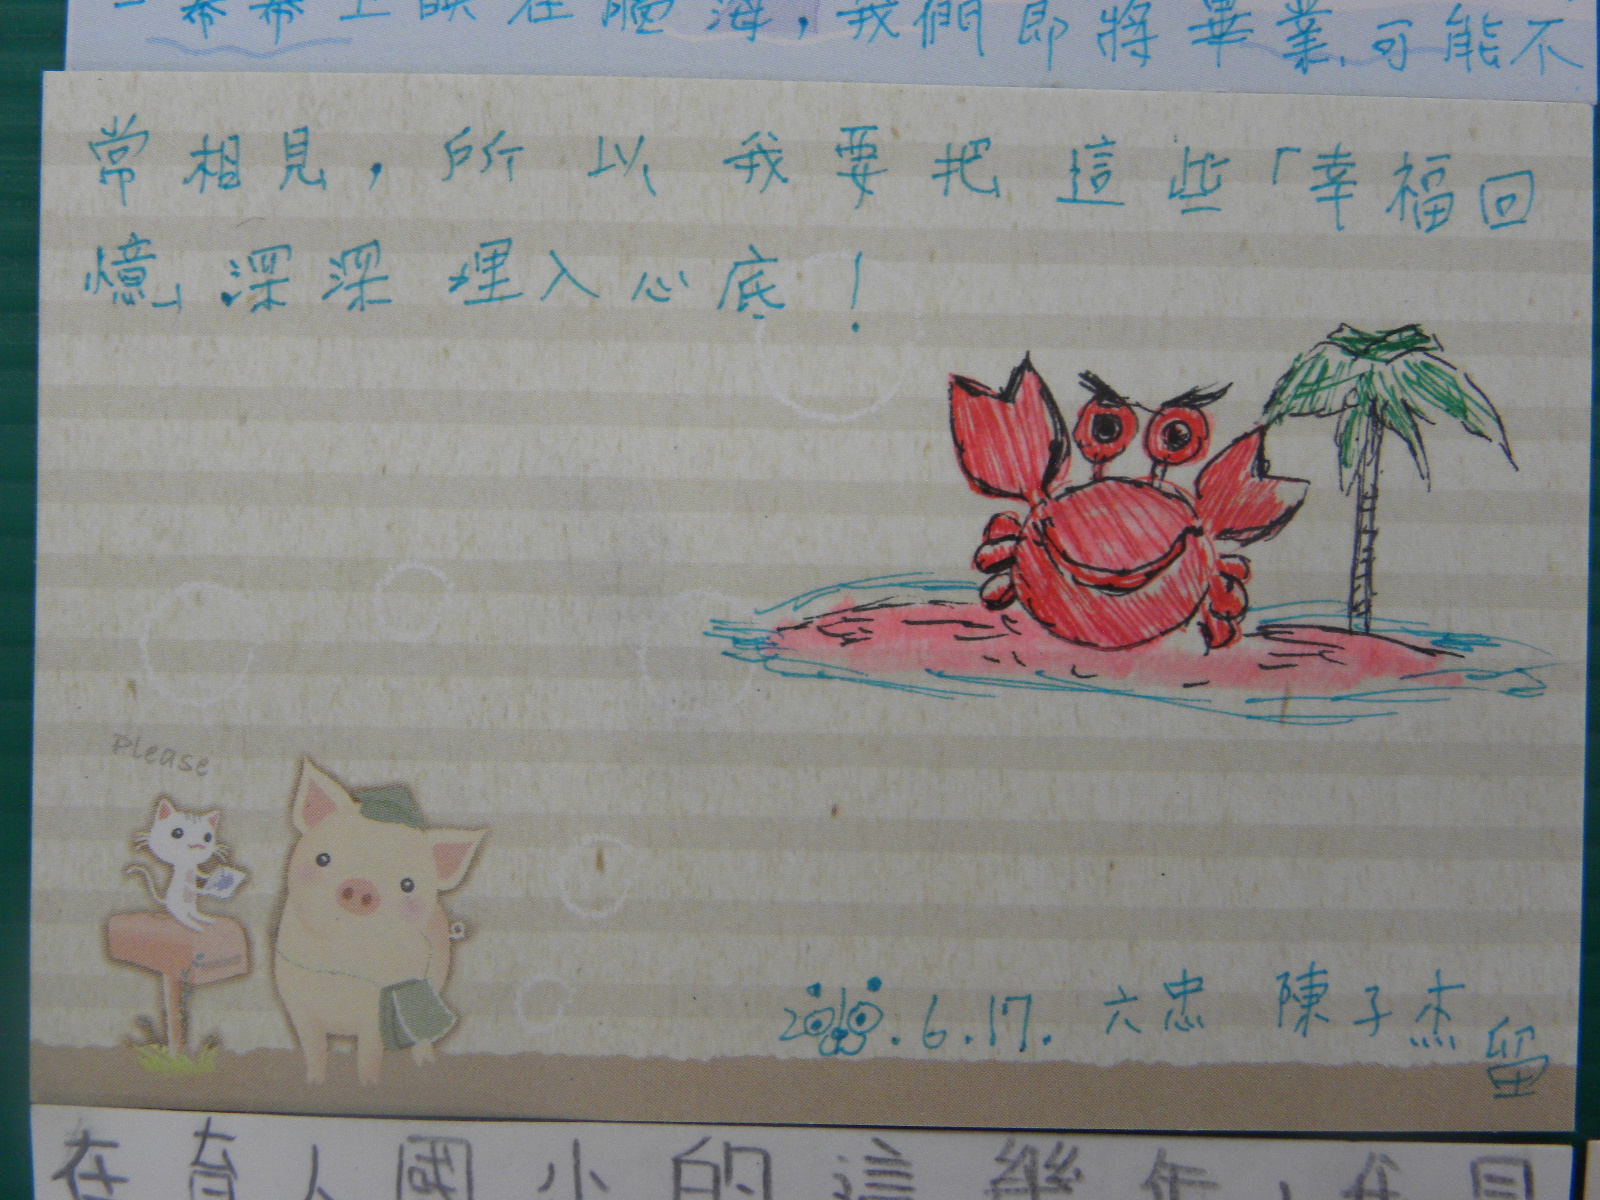 一幕幕上映在腦海,我們即將畢業,可能不
常相見,所以我要把這些「幸福回
憶」深深埋入心底!
Please
2010.6.17. 六忠 陳子杰 留
在育人國小的這幾年,